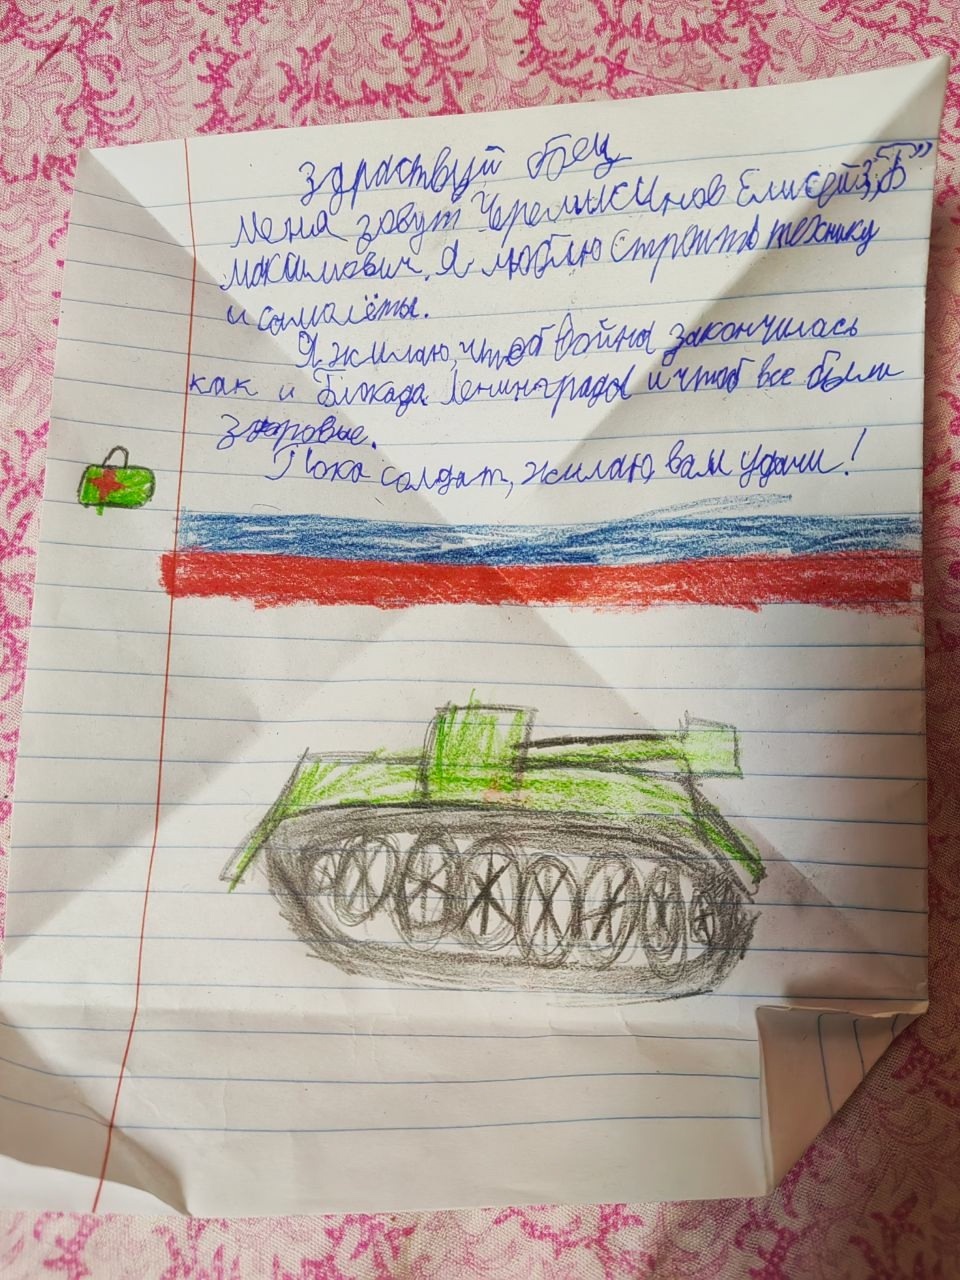 Здраствуй боец
Меня зовут Черемискинов Елисей 3„Б”
Максимович. Я люблю строить технику
и самолёты.
Я жилаю, чтоб война закончилась
как и Блокада Ленинграда и чтоб все были
здоровые.
Пока солдат, жилаю вам удачи!